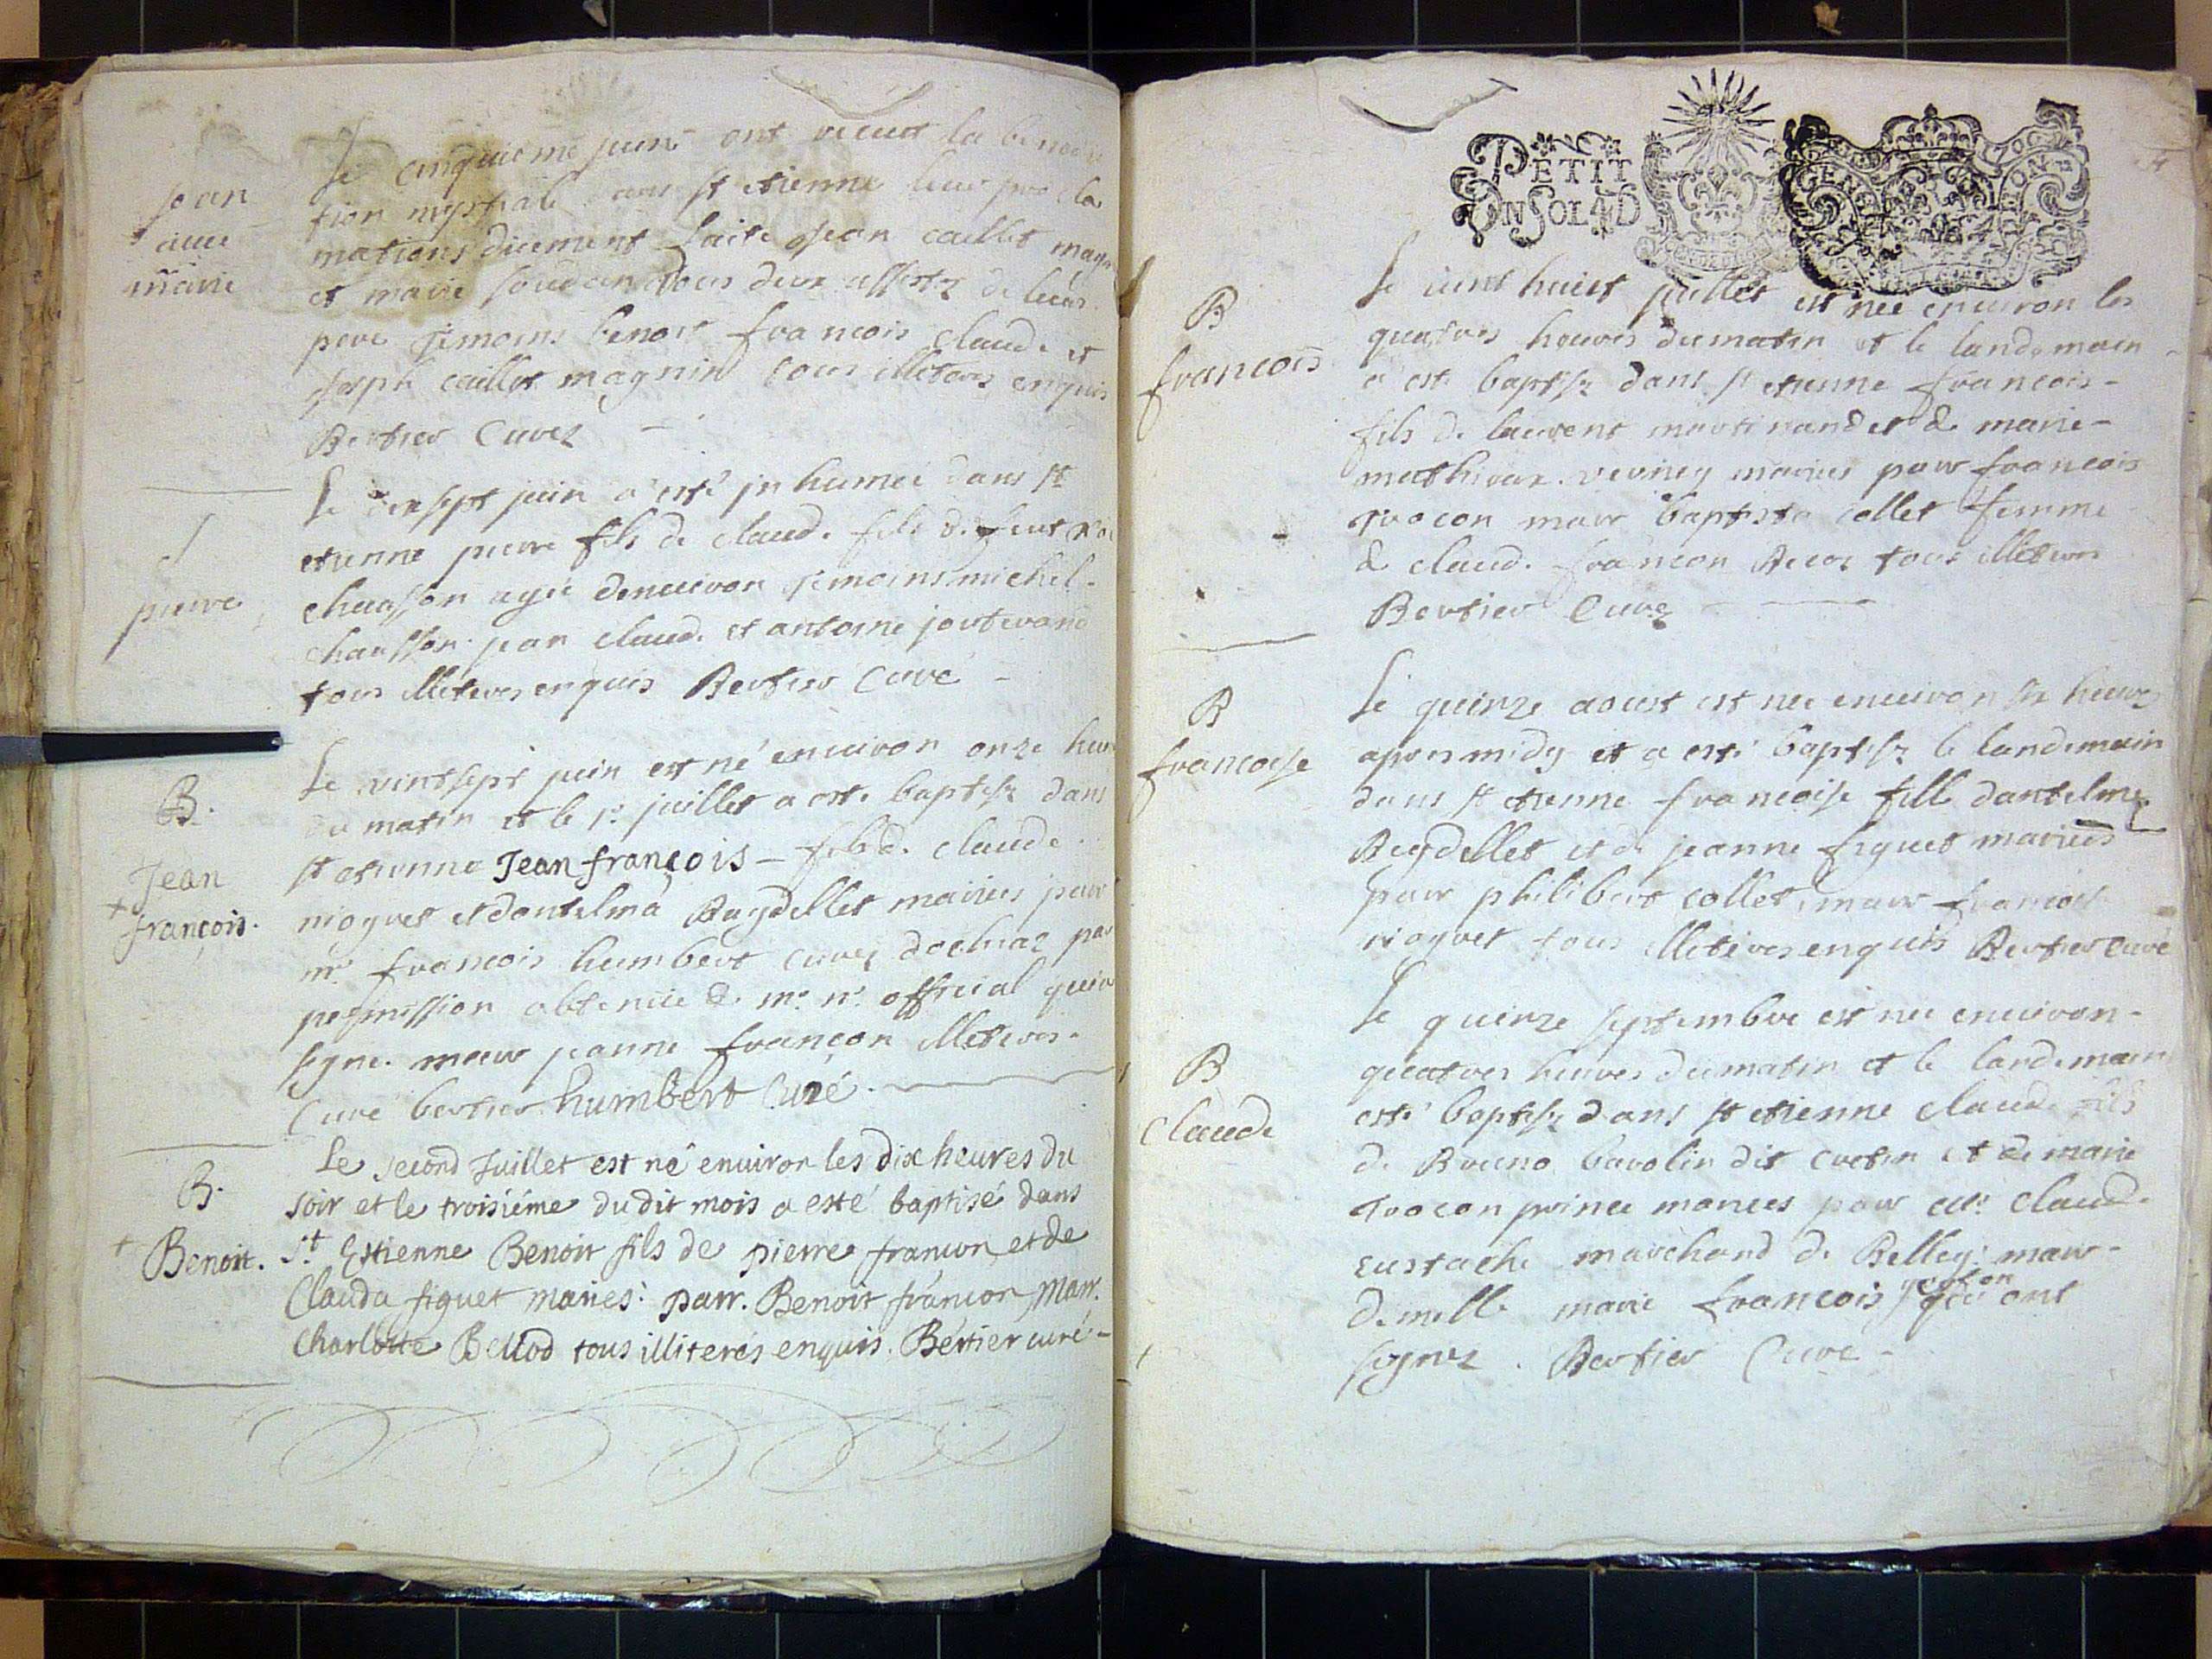 Jean
avec
marie
Le cinquieme juin ont receut la benedic
tion nuptiale dans st etienne leur procla
mations duement faite Jean caillet magn
et marie soudan tous deux assistz de leurs
pere temoins benoit francois claude et
joseph caillet magnin tous illeteres enquis
Bertier Curez
S
pierre
Le dix sept juin a esté jn humé dans st
etienne pierre fils de claude fils de feut
chausson agé denuiron temoins michel
chausson jean claude et antoine jorterand
tous illeteres enquis Bertier Curé
B.
Jean
+
françois.
Le vintsept juin est né enuiron onze heur
du matin et le 1r juillet a este baptisz dans
st etienne Jean françois fils de claude
nioguet et dantelma Reydellet mariés parr
mr francois humbert curez dochiaz par
permission obtenüe de mr nr official qui a
signe marr jeanne françon illeteres
Curé bertier humbert Curé
B.
+ Benoit.
Le second Juillet est né enuiron les dix heures du
soir et le troisiéme dudit mois a esté baptisé dans
St. Estienne Benoit fils de pierre françon et de
Clauda figuet mariés: parr. Benoit françon Marr.
Charlotte Bellod tous illiterés enquis. Bértier curé
PETIT
UN SOL 4 D
GENERA
B
francois
Le vint huict juillet est nee enuiron les
quatres heures dumatin et le landemain
a este baptisz dans st etienne francois
fils de laurent martinand et de marie
mathieux verney mariés parr francois
trocon marr baptista collet femme
de claude francon Recoz tous illeteres
Bertier Curez
B
francoise
Le quinze aoust est nee enuiron six heures
apres midy et a esté baptisz le landemain
dans st etienne francoise fille dantelme
Reydellet et de jeanne figuet mariés
parr philibert collet marr francoise
nioguet tous illeteres enquis Bertier curé
B
Claude
Le quinze septembre est né enuiron
quatres heures dumatin et le landemain
esté baptisz dans st etienne claude fils
de Bruno bavolin dit cretin et de marie
trocon prince mariees parr claude
eustache marchand de Belley marr
demelle marie francois qui ont
signez. Bertier Curé